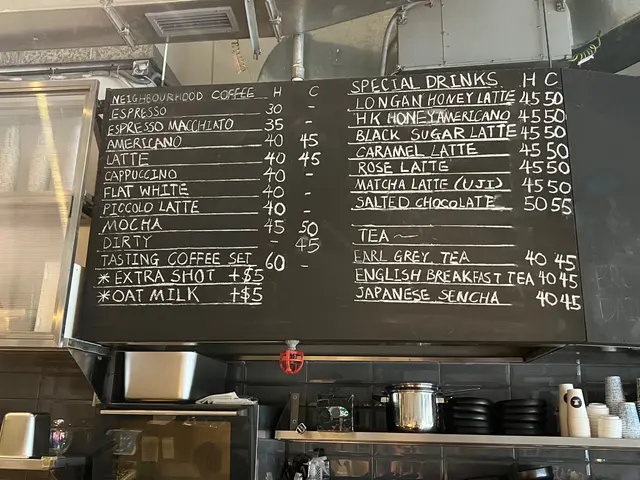 NEIGHBOURHOOD COFFEE H C
ESPRESSO 30 -
ESPRESSO MACCHIATO 35 -
AMERICANO 40 45
LATTE 40 45
CAPPUCCINO 40 -
FLAT WHITE 40 -
PICCOLO LATTE 40 -
MOCHA 45 50
DIRTY - 45
TASTING COFFEE SET 60 -
*EXTRA SHOT +$5
*OAT MILK +$5
SPECIAL DRINKS H C
LONGAN HONEY LATTE 45 50
HK HONEY AMERICANO 45 50
BLACK SUGAR LATTE 45 50
CARAMEL LATTE 45 50
ROSE LATTE 45 50
MATCHA LATTE (UJI) 45 50
SALTED CHOCOLATE 50 55
TEA ~
EARL GREY TEA 40 45
ENGLISH BREAKFAST TEA 40 45
JAPANESE SENCHA 40 45